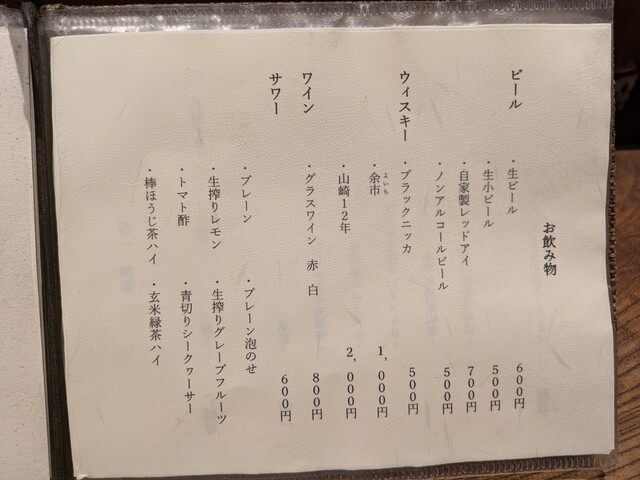 お飲み物
ビール
・生ビール 600円
・生小ビール 500円
・自家製レッドアイ 700円
・ノンアルコールビール 500円
ウィスキー
・ブラックニッカ 500円
・余市 1,000円
よいち
・山崎12年 2,000円
ワイン
・グラスワイン 赤 白 800円
サワー 600円
・プレーン ・プレーン泡のせ
・生搾りレモン ・生搾りグレープフルーツ
・トマト酢 ・青切りシークヮーサー
・棒ほうじ茶ハイ ・玄米緑茶ハイ